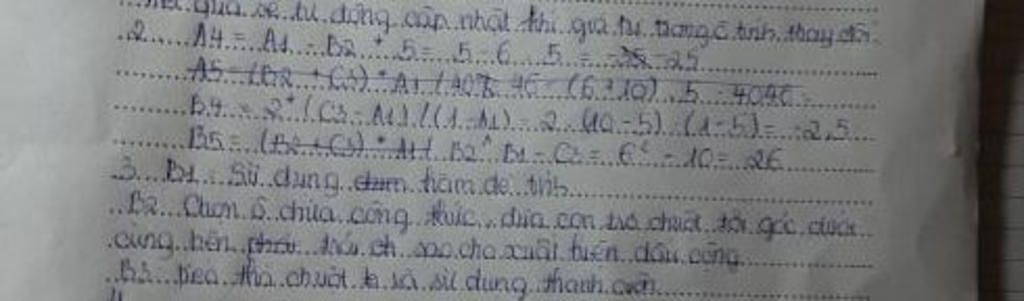 quả sẽ tự động cập nhật khi giá trị trong ô tính thay đổi.
2. A4 = A1 - B2 * 5 = 5 - 6 . 5 = -25
A5 = (B2 + C3) * A1 /
B4 = 2 * (C3 - A1) / (1 - A1) = 2 . (10 - 5) : (1 - 5) = -2,5
B5 = (B2 + C3) * A1 / B2 ^ B1 - C3 = 6² - 10 = 26
3. B1: Sử dụng hàm để tính
B2 Chọn ô chứa công thức, đưa con trỏ chuột tới góc dưới
cùng bên phải sao cho xuất hiện dấu cộng
B3 kéo thả chuột sử dụng thanh cuốn